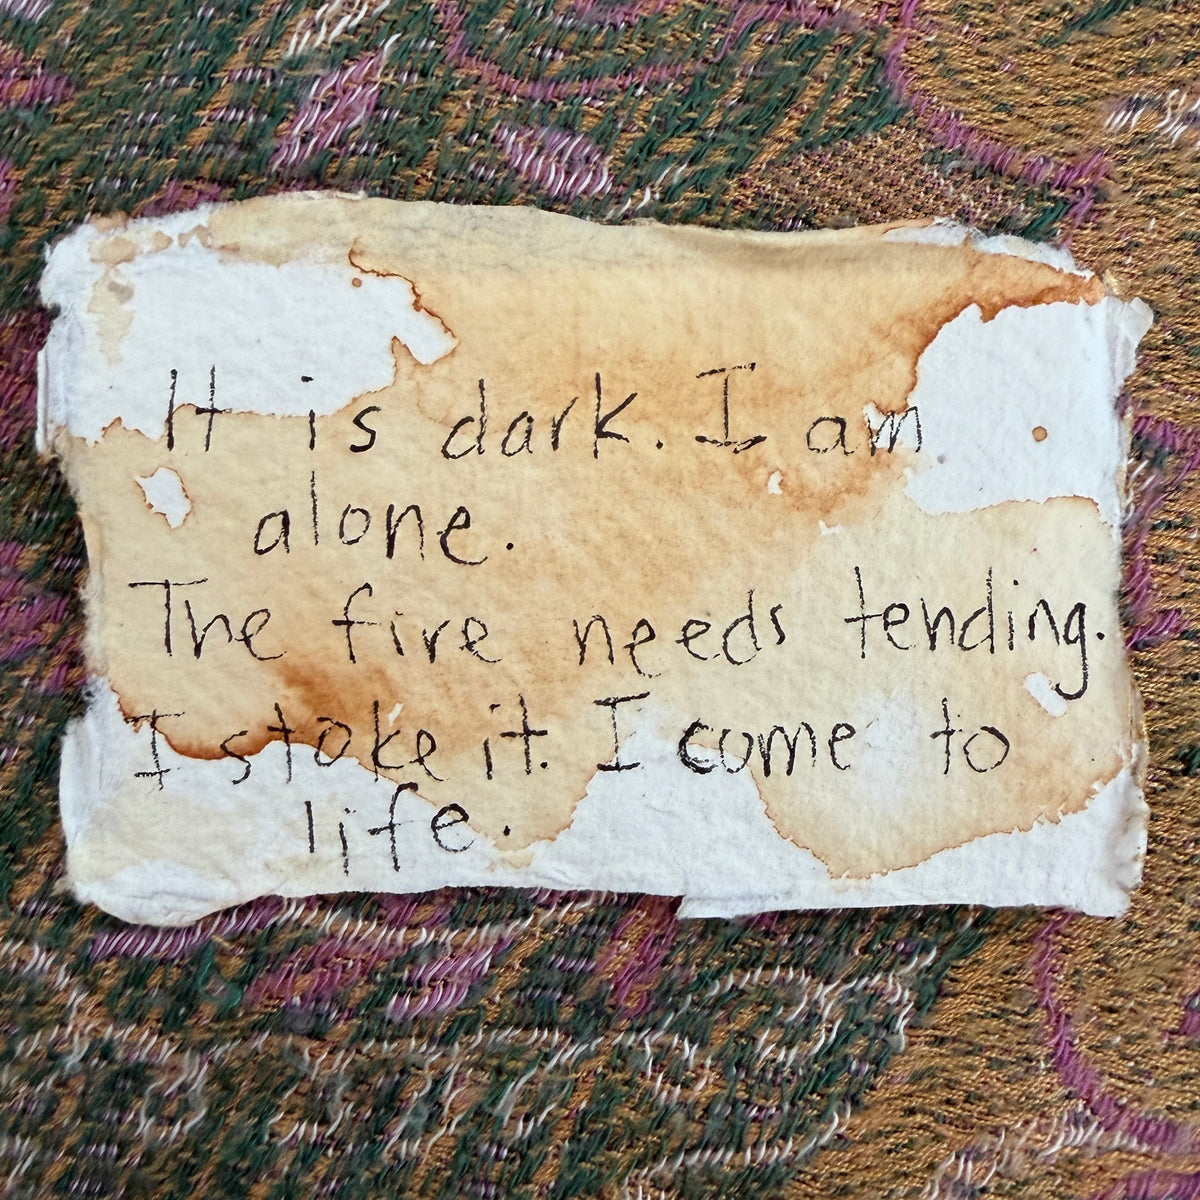 It is dark. I am
alone.
The fire needs tending.
I stoke it. I come to
life.